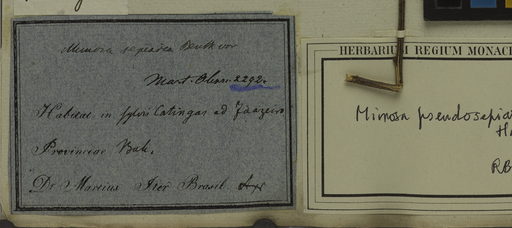 Mimosa sepiaria Benth var
Mart. Obs. 2292.
Habitat in sylvis Catingas ad Joazeiro
Provinciae Bah.
Dr. Martius Iter Brasil.
HERBARIUM REGIUM MONAC
Mimosa pseudosepia
Ha
RB